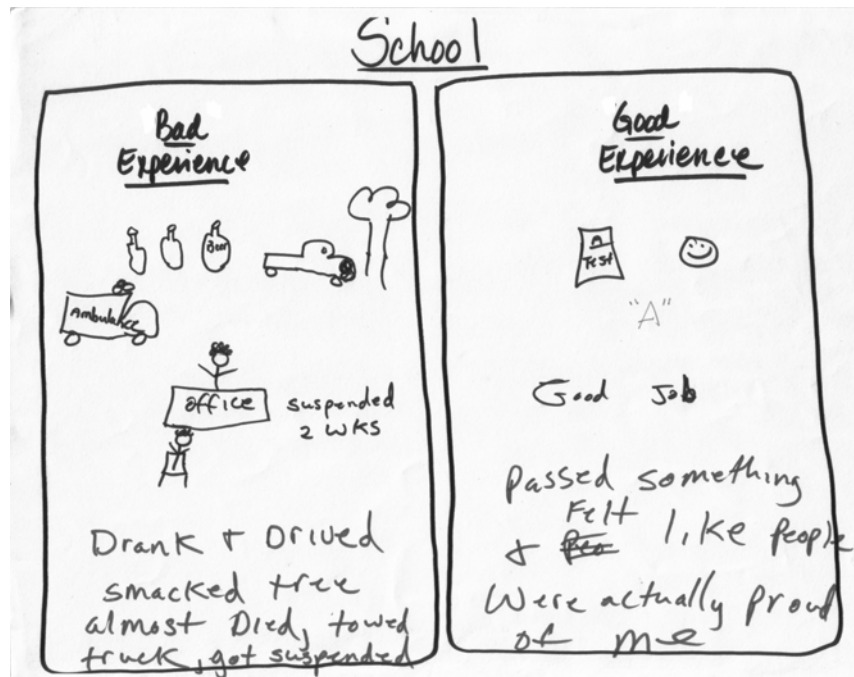 School
Bad
Experience
Beer
Ambulance
office
suspended
2 WKS
Drank + Drived
smacked tree
almost Died, towed
truck, got suspended
Good
Experience
Test
"A"
Good Job
Passed something
+ Felt like People
Were actually proud
of me